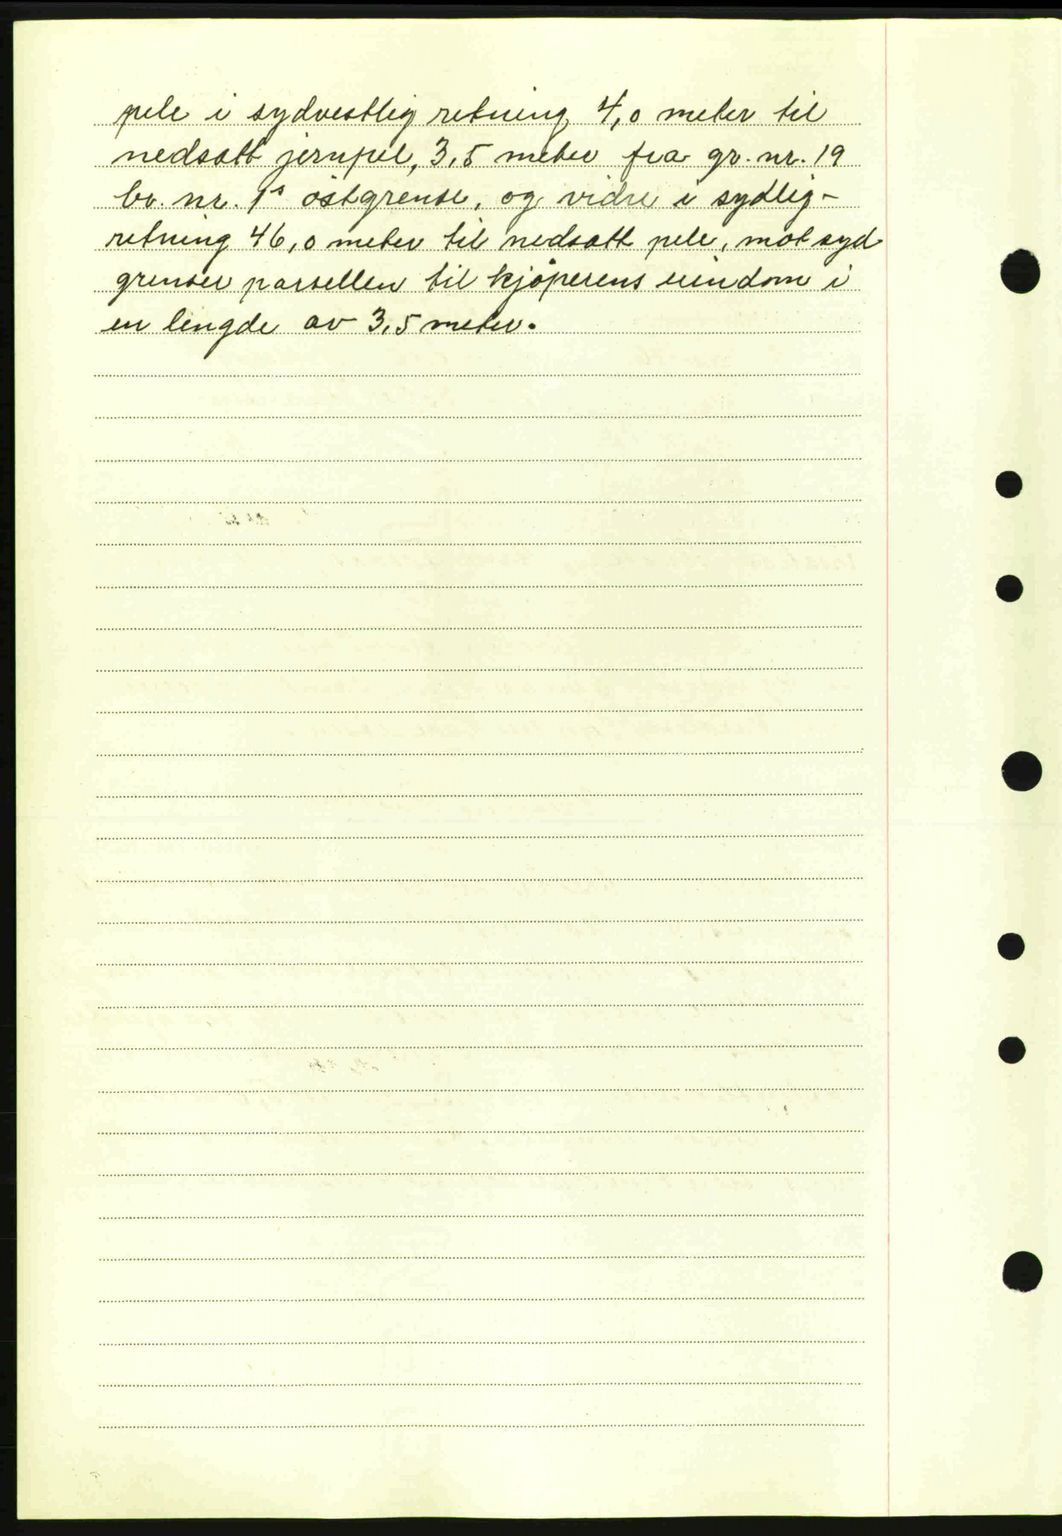 pele i sydvestlig retning 4,0 meter til
nedsatt jernpel, 3,5 meter fra gr. nr. 19
br. nr. 1s östgrense, og vidre i sydlig-
retning 46,0 meter til nedsatt pele, mot syd
grenser parsellen til kjöperens eiendom i
en lengde av 3,5 meter.